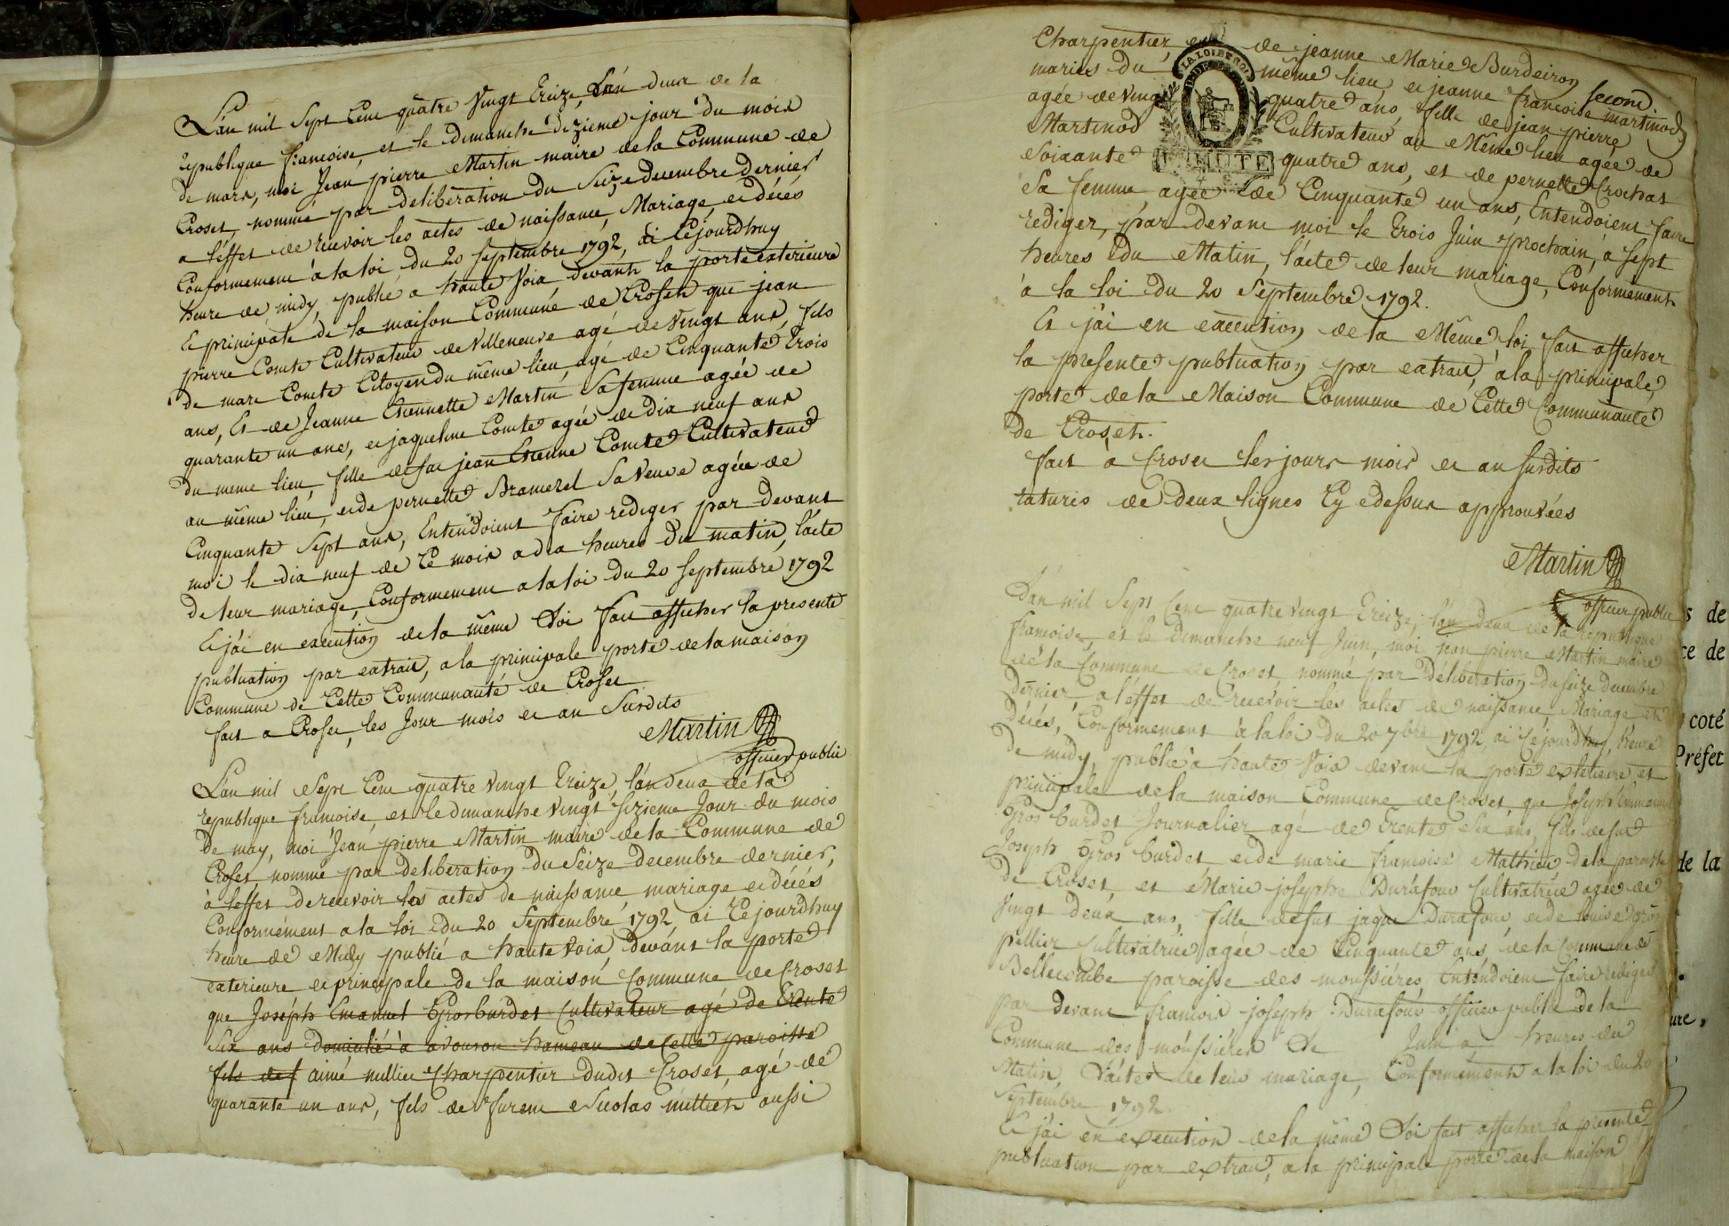 L'an mil Sept Cent quatre Vingt treize, L'an deux de la
republique francoise, et le dimanche dizieme jour du mois
de mars, moi Jean pierre Martin maire de la Commune de
Croset, nommé par deliberation du Seize decembre dernier
a l'effet de recevoir les actes de naissance, Mariage et décés
Conformement à la loi du 20 septembre 1792, ai Cejourdhuy
heure de midy, publié a haute Voix devant la porte exterieure
et principale de la maison Commune de Croset que jean
pierre Comte Cultivateur de Villeneuve agé de Vingt ans, fils
de marc Comte Citoyen du même lieu, agé de Cinquante trois
ans, Et de Jeanne Etiennette Martin Sa femme agée de
quarante un ans, et jaqueline Comte agée de dix neuf ans
du meme lieu, fille de feu jean Etienne Comte Cultivateur
au même lieu, et de pernette Bramerel Sa Veuve agée de
Cinquante Sept ans, Entendoient faire rediger par devant
moi le dix neuf de Ce mois a dix heures du matin, l'acte
de leur mariage, Conformement a la loi du 20 septembre 1792
Et j'ai en execution de la même Loi fait afficher la presente
publication par extrait, a la principale porte de la maison
Commune de Cette Communauté de Croset
fait a Croset, les Jour mois et an Susdits
Martin
officier public
L'an mil Sept Cent quatre vingt treize, l'an deux de la
republique francoise, et le dimanche vingt sizieme Jour du mois
de may, moi Jean pierre Martin maire de la Commune de
Croset nommé par deliberation du Seize decembre dernier,
à l'effet de recevoir les actes de naissance, mariage et décés
Conformément a la loi du 20 Septembre 1792 ai Cejourdhuy
heure de Midy publié a haute voix, devant la porte
exterieure et principale de la maison Commune de Croset
que Joseph Emanuel Grosburdet Cultivateur agé de trente
Six ans domicilié à hameau de Cette paroisse
fils de f aimé millier Charpentier dudit Croset, agé de
quarante un ans, fils de Nicolas aussi
Charpentier, et de jeanne Marie Burdeiron
mariés du même lieu et jeanne francoise second. martinod
agée de vingt quatre ans, fille de jean pierre
Martinod Cultivateur au Même lieu agée de
Soixante quatre ans, et de pernette Crochat
Sa femme agée de Cinquante un ans, Entendoient faire
rediger, par devant moi le trois Juin prochain, à sept
heures du Matin, l'acte de leur mariage, Conformement
à la loi du 20 Septembre 1792.
Et j'ai en execution de la Même loi fait afficher
la presente publication par extrait, à la principale
porte de la Maison Commune de Cette Communauté
de Croset.
fait a Croset les jours mois et an susdits
ratures de deux lignes Cy dessus approuvées
Martin
officier public
L'an mil Sept Cent quatre vingt treize, l'an deux de la republique
francoise, et le dimanche neuf Juin, moi jean pierre Martin maire
de la Commune de Croset, nommé par déliberation du Seize decembre
dernier, a l'effet de recevoir les actes de naissance, Mariage et
décés, Conformement à la loi du 20 7bre 1792 ai Cejourdhuy, heure
de midy, publié à haute Voix devant la porte exterieure et
principale de la maison Commune de Croset, que Joseph Emmanuel
Gros burdet Journalier agé de trente Six ans, fils de feu
Joseph Gros burdet et de marie francoise Mathieu de la paroisse
de Croset, et Marie josephe Durafour Cultivatrice agée de
Vingt deux ans, fille de feu jaque Durafour et de louise gros
pellier Cultivatrice agée de Cinquante ans de la Commune de
Bellecombe paroisse des moussieres, Entendoient faire rediger
par devant francois joseph Durafour officier public de la
Commune des moussieres le Juin a heures du
Matin, l'acte de leur mariage, Conformement a la loi du 20
Septembre 1792.
Et j'ai en execution de la même Loi fait afficher la presente
publication par extrait, a la principale porte de la Maison
LA LOI
s de
ce de
coté
Préfet
de la
ure,